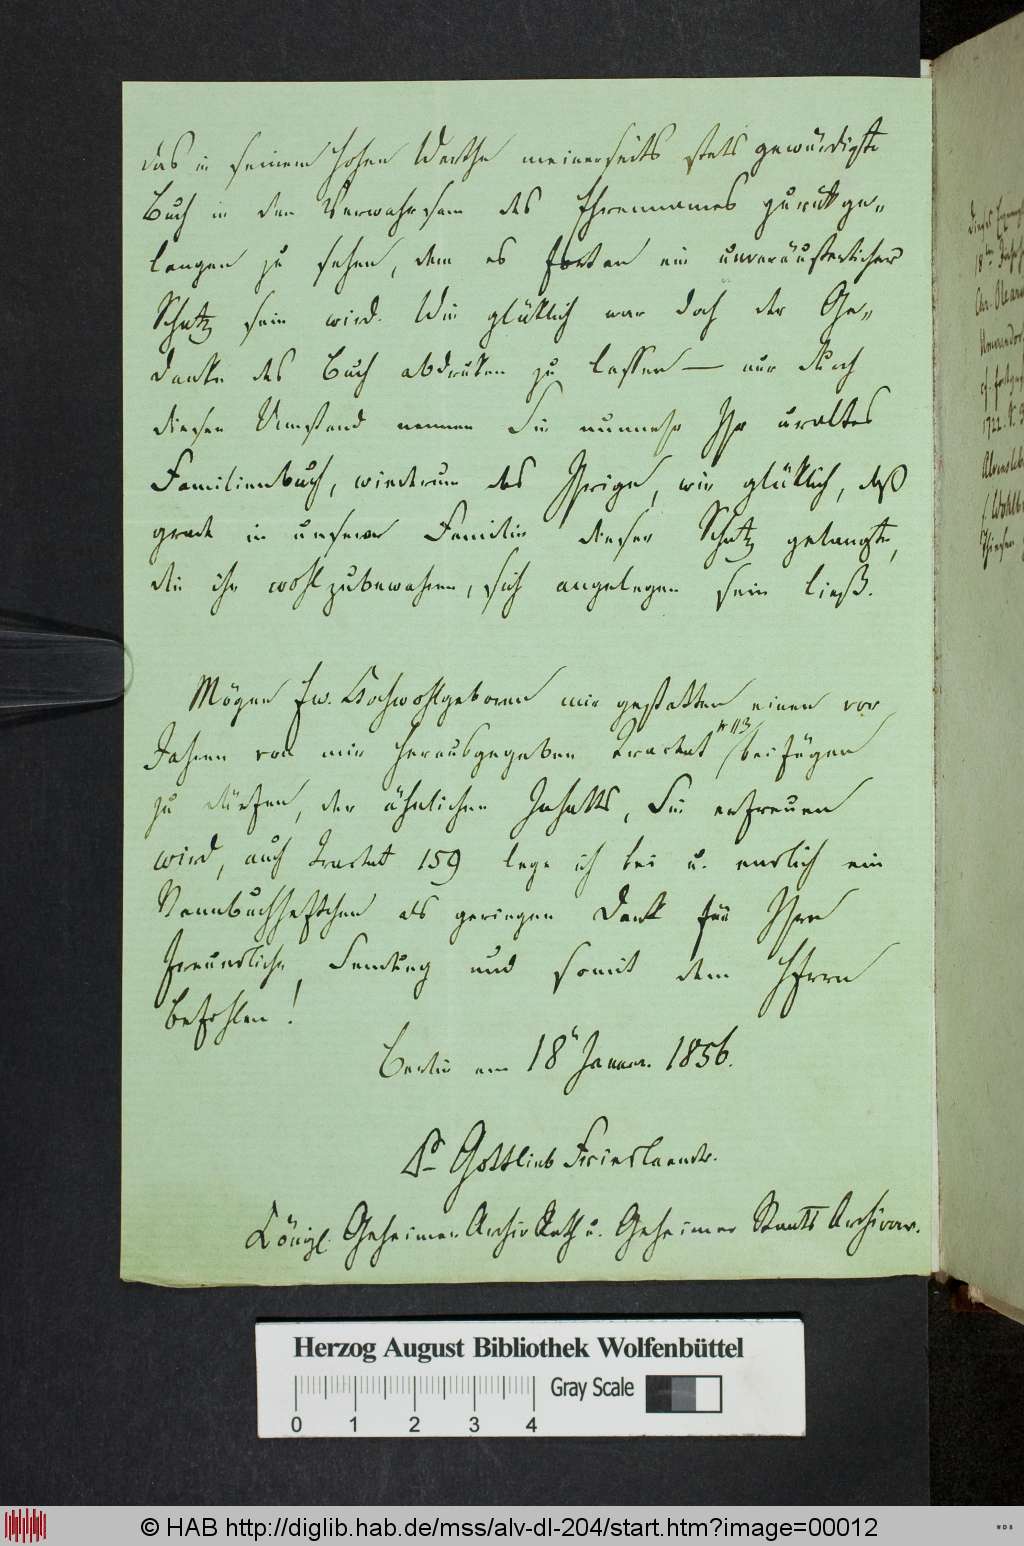 das in seinem hohen Werthe meinerseits stets gewürdigte
Buch in den Verwahrsam des Ehrennames zurükge„
langen zu sehen, dem es fortan ein unveräußerlicher
Schatz sein wird. Wie glüklich war doch der Ge„
danke das Buch abdrukken zu lassen — nur durch
diesen Umstand nennen Sie nunmehr Ihr uraltes
Familienbuch, wiederum das Ihrige, wie glüklich, daß
grade in unserer Familie dieser Schatz gelangte,
die ihn wohl zubewahren, sich angelegen sein ließ.
Mögen Ew. Hochwohlgeboren mir gestatten einen vor
Jahren von mir herausgegeben Tractat N 113 beifügen
zu dürfen, der ähnlichen Inhalts, Sie erfreuen
wird, auch Tractat 159 lege ich bei u. endlich ein
buchheftchen als geringen Dank für Ihre
freundliche Sendung und somit dem HErrn
befohlen!
Berlin am 18ⁿ Januar. 1856.
Dr Gottlieb Friedlaender.
Königl. Geheimer Archiv Rath u. Geheimer Staats Archivar.
dieses
18ten
1722.
Herzog August Bibliothek Wolfenbüttel
Gray Scale
0 1 2 3 4
© HAB http://diglib.hab.de/mss/alv-dl-204/start.htm?image=00012